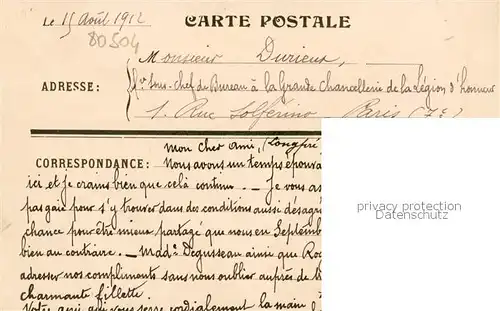 Le 15 Août 1912
CARTE POSTALE
80504
Monsieur Durieux,
ADRESSE :
Sous-chef de Bureau à la Grande Chancellerie de la Légion d'honneur
1. Rue Solférino Paris (7e)
mon cher ami, (Longpré
CORRESPONDANCE : Nous avons un temps épouva
ici et je crains bien que celà continue. — Je vous as
pas gaie pour s'y trouver dans des conditions aussi désagré
chance pour être mieux partagé que nous en Septemb
bien au contraire. — Made Degusseau ainsi que Ro
adresser nos compliments sans nous oublier auprès de
charmante fillette.
Votre ami qui vous serre cordialement la main
privacy protection
Datenschutz